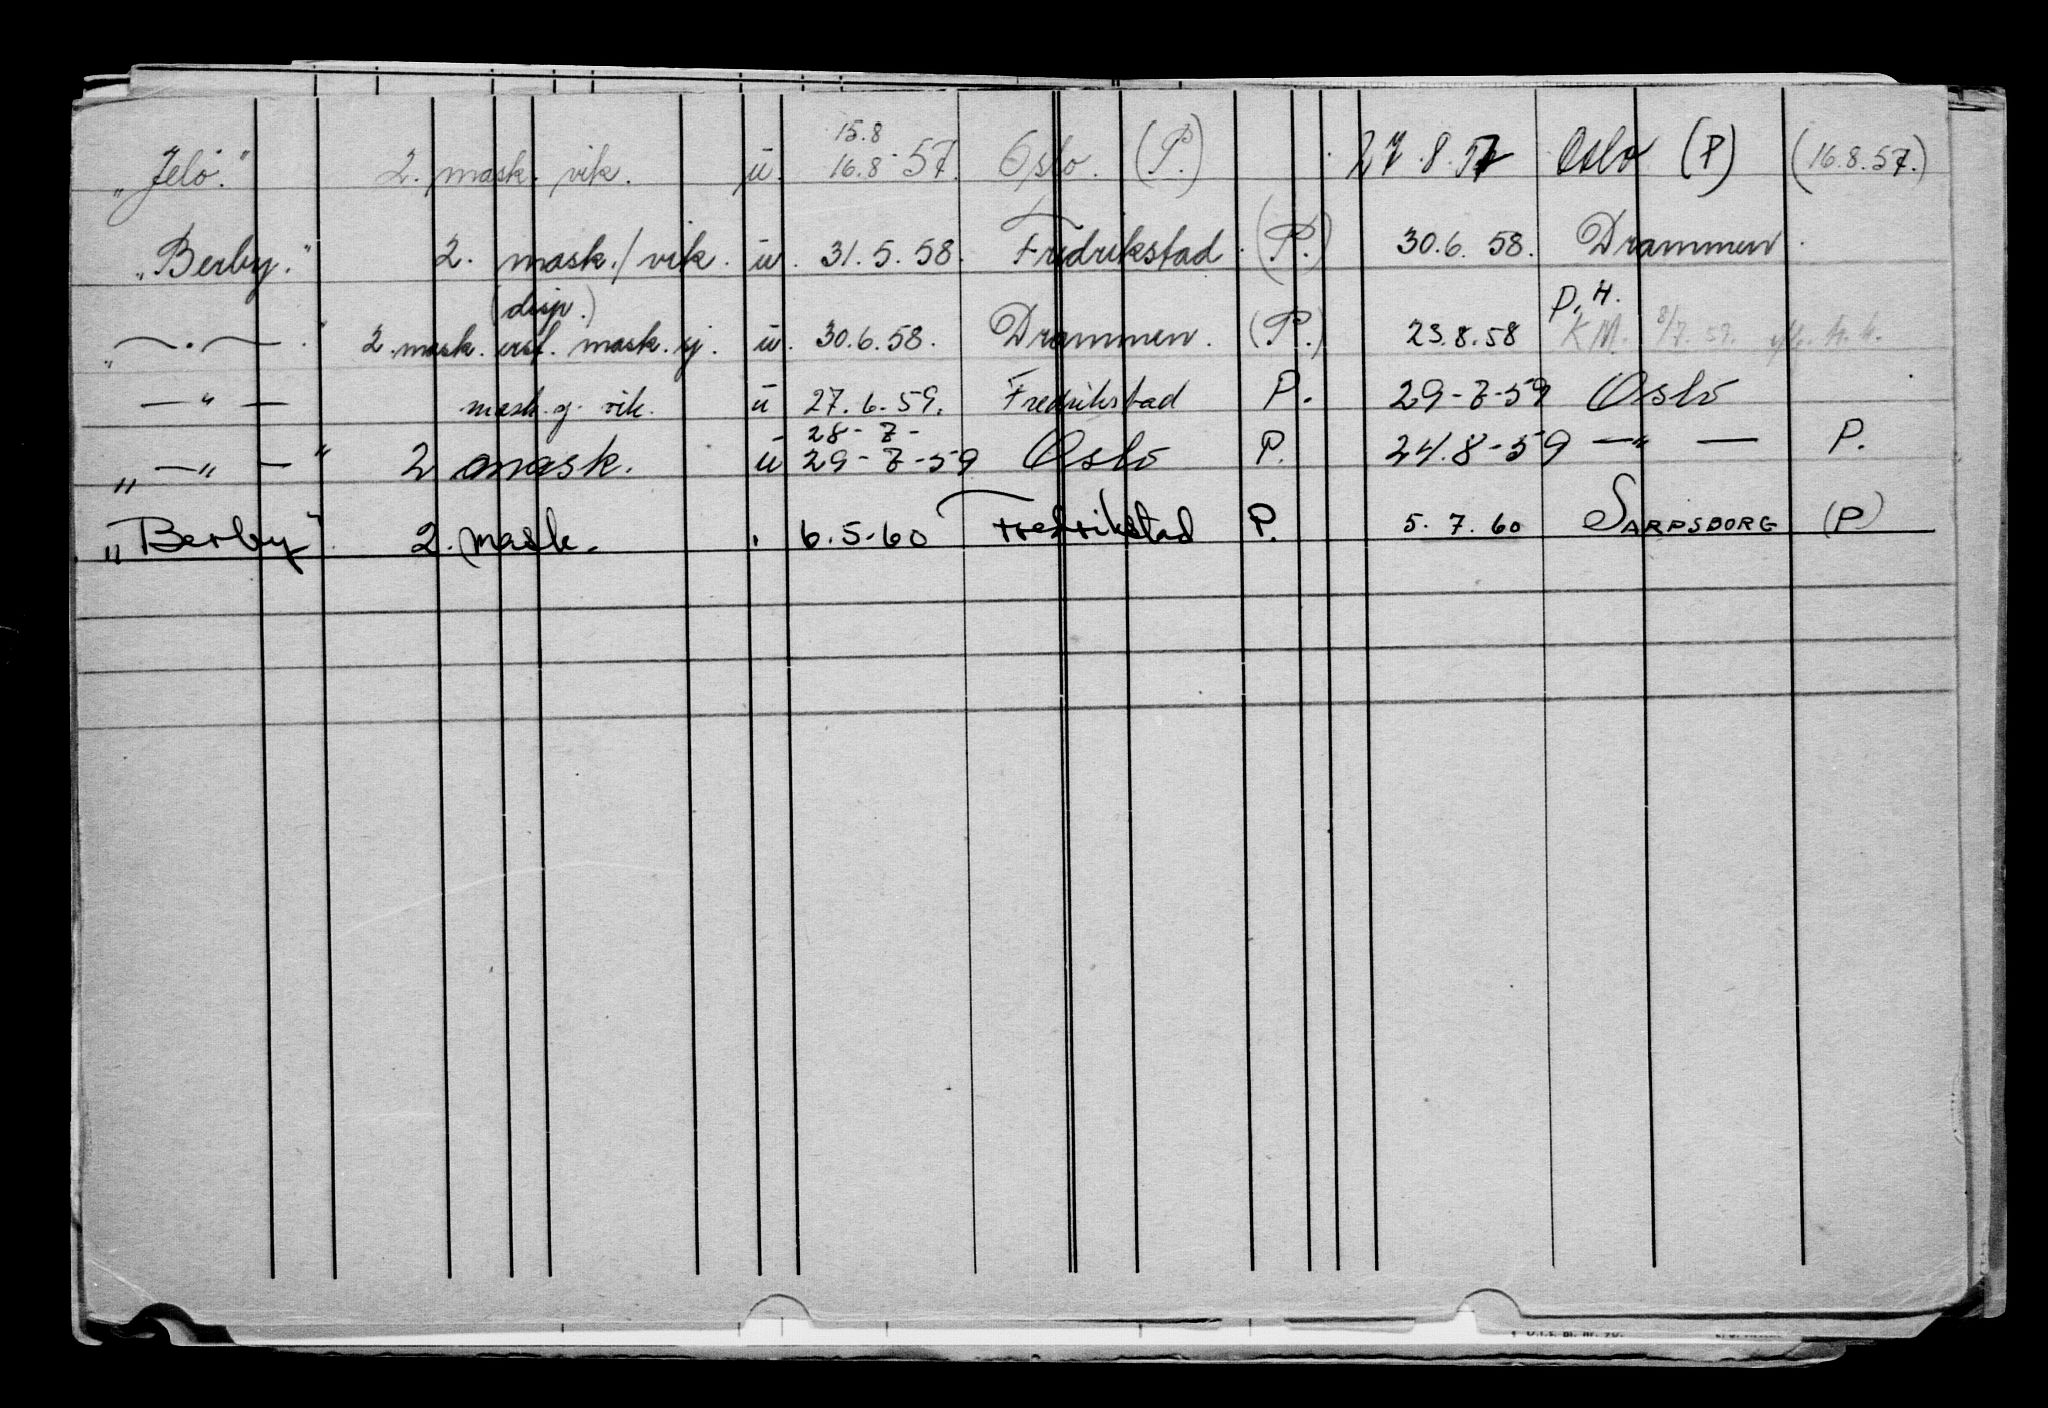 15.8
„Jelö." 2. mask. vik. ü. 16.8-57. Oslo. (P.) 27.8.57 Oslo (P) (16.8.57.)
„Berby." 2. mask./vik. ü. 31.5.58. Fredrikstad. (P.) 30.6.58. Drammen.
(disp.) P. H.
„—.—." 2. mask. erst. mask. sj. ü. 30.6.58. Drammen. (P.) 23.8.58 KM. 8/7.59.
—"— mask. g. vik. ü 27.6.59. Fredrikstad P. 29-7-59 Oslo
28-7-
„—"—" 2 mask. ü 29-7-59 Oslo P. 24.8-59 —"— P.
„Berby" 2. mask. . 6.5-60 Fredrikstad P. 5.7.60 SARPSBORG (P)